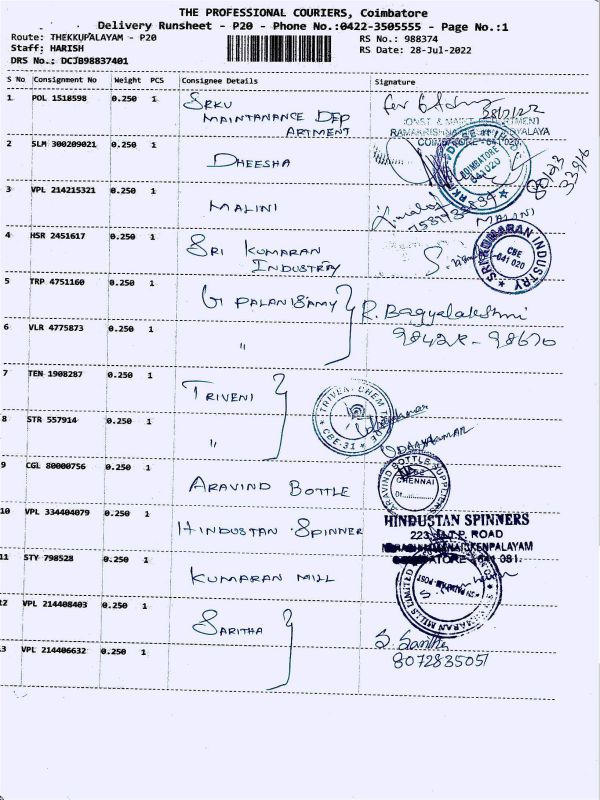 THE PROFESSIONAL COURIERS, Coimbatore
Delivery Runsheet - P20 - Phone No.:0422-3505555 - Page No.:1
Route: THEKKUPALAYAM - P20
RS No.: 988374
Staff: HARISH
RS Date: 28-Jul-2022
DRS No.: DCJB98837401
S No Consignment No Weight PCS Consignee Details Signature
1 POL 1518598 0.250 1 SRKV
MAINTANANCE DEP
ARTMENT
28/7/22
COIMBATORE - 641 020
2 SLM 300209021 0.250 1 DHEESHA
COIMBATORE
641 020
3 VPL 214215321 0.250 1 MALINI
MALINI
4 HSR 2451617 0.250 1 SRI KUMARAN
INDUSTRY
SRI KUMARAN INDUSTRY
CBE
-641 020
5 TRP 4751160 0.250 1 G PALANISAMY
R. Bagyalakshmi
98428-98670
6 VLR 4775873 0.250 1 "
7 TEN 1908287 0.250 1 TRIVENI
TRIVENI CHEM TRADE
CBE-31
8 STR 557914 0.250 1 "
UDAYAKUMAR
9 CGL 80000756 0.250 1 ARAVIND BOTTLE
ARAVIND BOTTLE SUPPLIERS
CHENNAI
10 VPL 334404079 0.250 1 HINDUSTAN SPINNER
HINDUSTAN SPINNERS
223, M.T.P. ROAD
11 STY 798528 0.250 1 KUMARAN MILL
KUMARAN MILLS LIMITED
12 VPL 214408403 0.250 1 SARITHA
S. Saritha
8072835051
13 VPL 214406632 0.250 1